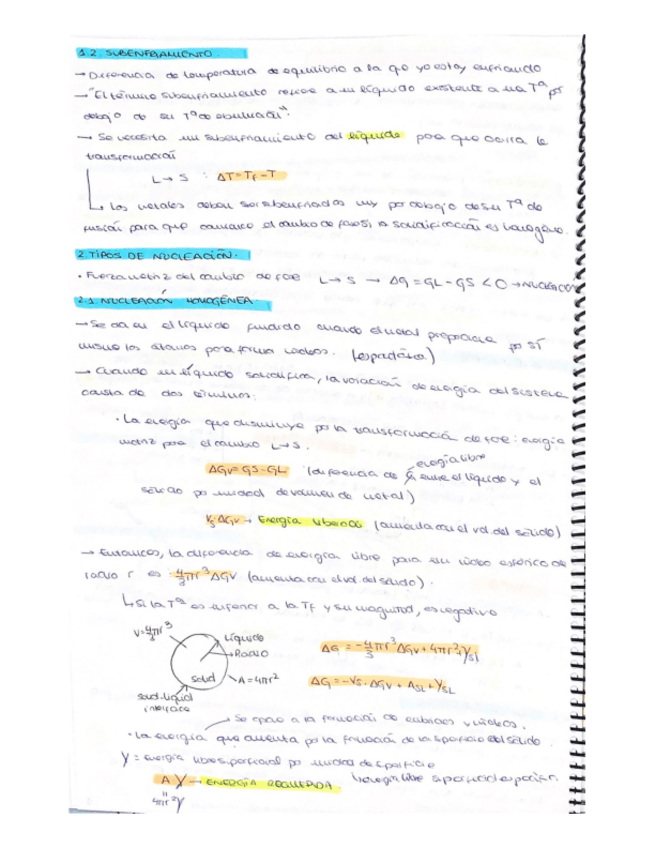 1.2. SUBENFRIAMIENTO.
→ Diferencia de temperatura de equilibrio a la que yo estoy enfriando
→ "El término subenfriamiento refiere a un líquido existente a una Tª por
debajo de su Tª de
→ Se necesita un subenfriamiento del líquido para que ocurra la
transformación
L→S : ΔT = Tf - T
↳ Los metales deben ser subenfriados muy por debajo de su Tª de
fusión para que comience el cambio de fase si la solidificación es homogénea.
2. TIPOS DE NUCLEACIÓN.
· Fuerza motriz del cambio de fase L→S → ΔG = GL - GS < 0 → NUCLEACIÓN
2.1 NUCLEACIÓN HOMOGÉNEA.
→ Se da en el líquido fundido cuando el metal proporciona por sí
mismo los átomos para formar núcleos. (espontánea)
→ Cuando un líquido solidifica, la variación de energía del sistema
consta de dos términos:
· La energía que disminuye por la transformación de fase: energía
motriz para el cambio L→S.
energía libre
ΔGv = GS - GL (diferencia de G entre el líquido y el
sólido por unidad de volumen de metal)
Vs·ΔGv → Energía liberada (aumenta con el vol. del sólido)
→ Entonces, la diferencia de energía libre para un núcleo esférico de
radio r es: 4/3 πr³ ΔGv (aumenta con el vol. del sólido).
↳ Si la Tª es inferior a la Tf y su magnitud, es negativo
V = 4/3 πr³
Líquido
→ Radio
Solid
A = 4πr²
solid-liquid
interface
ΔG = -4/3 πr³ ΔGv + 4πr² · γsl
ΔG = -Vs · ΔGv + ASL · γSL
→ Se opone a la formación de embriones y núcleos.
· La energía que aumenta por la formación de la superficie del sólido.
γ = energía libre superficial por unidad de superficie
A γ → ENERGÍA REQUERIDA. ↳ energía libre superficial
4πr² γ